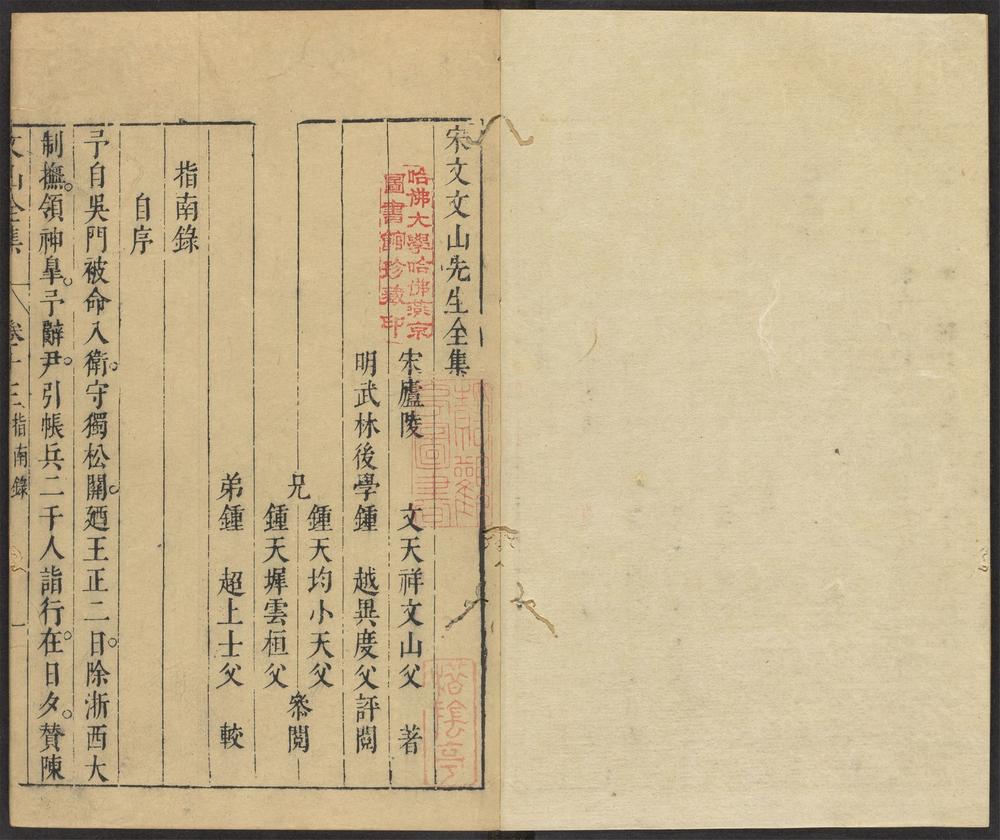 宋文文山先生全集
哈佛大學哈佛燕京
圖書館珍藏印
宋廬陵 文天祥文山父 著
明武林後學鍾 越異度父評閱
兄 鍾天均小天父
鍾天墀雲桓父 叅閱
弟鍾 超上士父 較
指南錄
自序
予自吳門被命入衛。守獨松關。廼王正二日。除浙西大
制撫。領神臯。予辭尹。引帳兵二千人詣行在。日夕。贊陳
文山全集 卷十三 指南錄